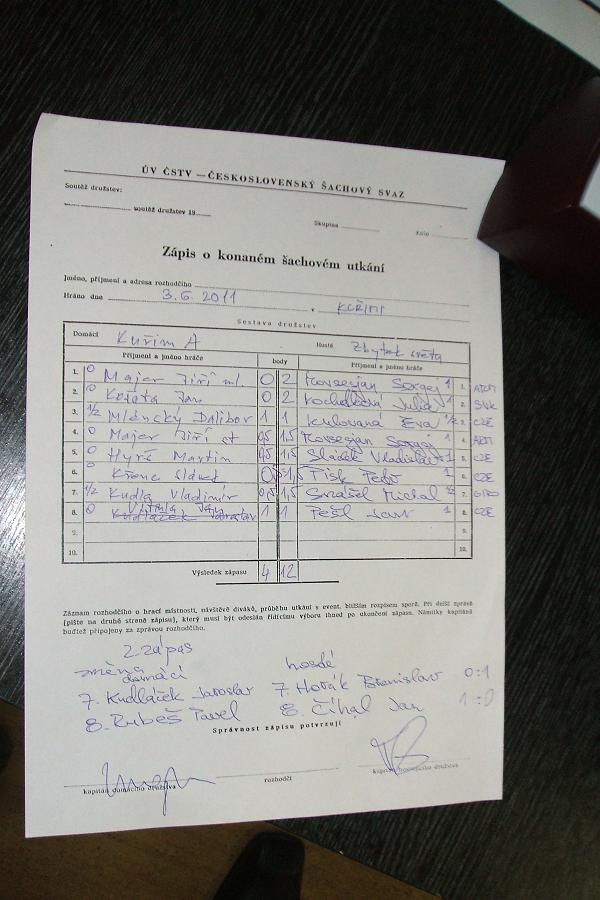 ÚV ČSTV — ČESKOSLOVENSKÝ ŠACHOVÝ SVAZ
Soutěž družstev:
soutěž družstev 19
Skupina Kolo
Zápis o konaném šachovém utkání
Jméno, příjmení a adresa rozhodčího
Hráno dne 3.6.2011 v KUŘIMI
Sestava družstev
Domácí Kuřim A Hosté Zbytek světa
Příjmení a jméno hráče body Příjmení a jméno hráče
1. 0 Majer Jiří ml. 0 2 Movsesjan Sergej 1 1.
2. 0 Kolata Jan 0 2 Kochetkova Julia 1 2. SVK
3. 1/2 Mlénský Dalibor 1 1 Kulovaná Eva 1/2 3. CZE
4. 0 Majer Jiří st 0,5 1,5 Movsesjan Sergej 1 4.
5. 0 Hyrš Martin 0,5 1,5 Sládek Vladislav 1 5. CZE
6. 0 0,5 1,5 Pisk Petr 1 6. CZE
7. 1/2 Kudla Vladimír 0,5 1,5 Michal 1/2 7.
8. 0 Kudláček Jaroslav 1 1 Pešl Jan 1 8. CZE
9. 9.
10. 10.
Výsledek zápasu 4 12
Záznam rozhodčího o hrací místnosti, návštěvě diváků, průběhu utkání s event. bližším rozpisem sporů. Při delší zprávě
(pište na druhé straně zápisu), který musí být odeslán řídícímu výboru ihned po ukončení zápasu. Námitky kapitánů
buďtež připojeny za zprávou rozhodčího.
2. zápas
změna
domácí hosdé
7. Kudláček Jaroslav 7. Horák Branislav 0:1
8. Rubeš Pavel 8. Číhal Jan 1:0
Správnost zápisu potvrzují
kapitán domácího družstva rozhodčí kapitán hostujícího družstva